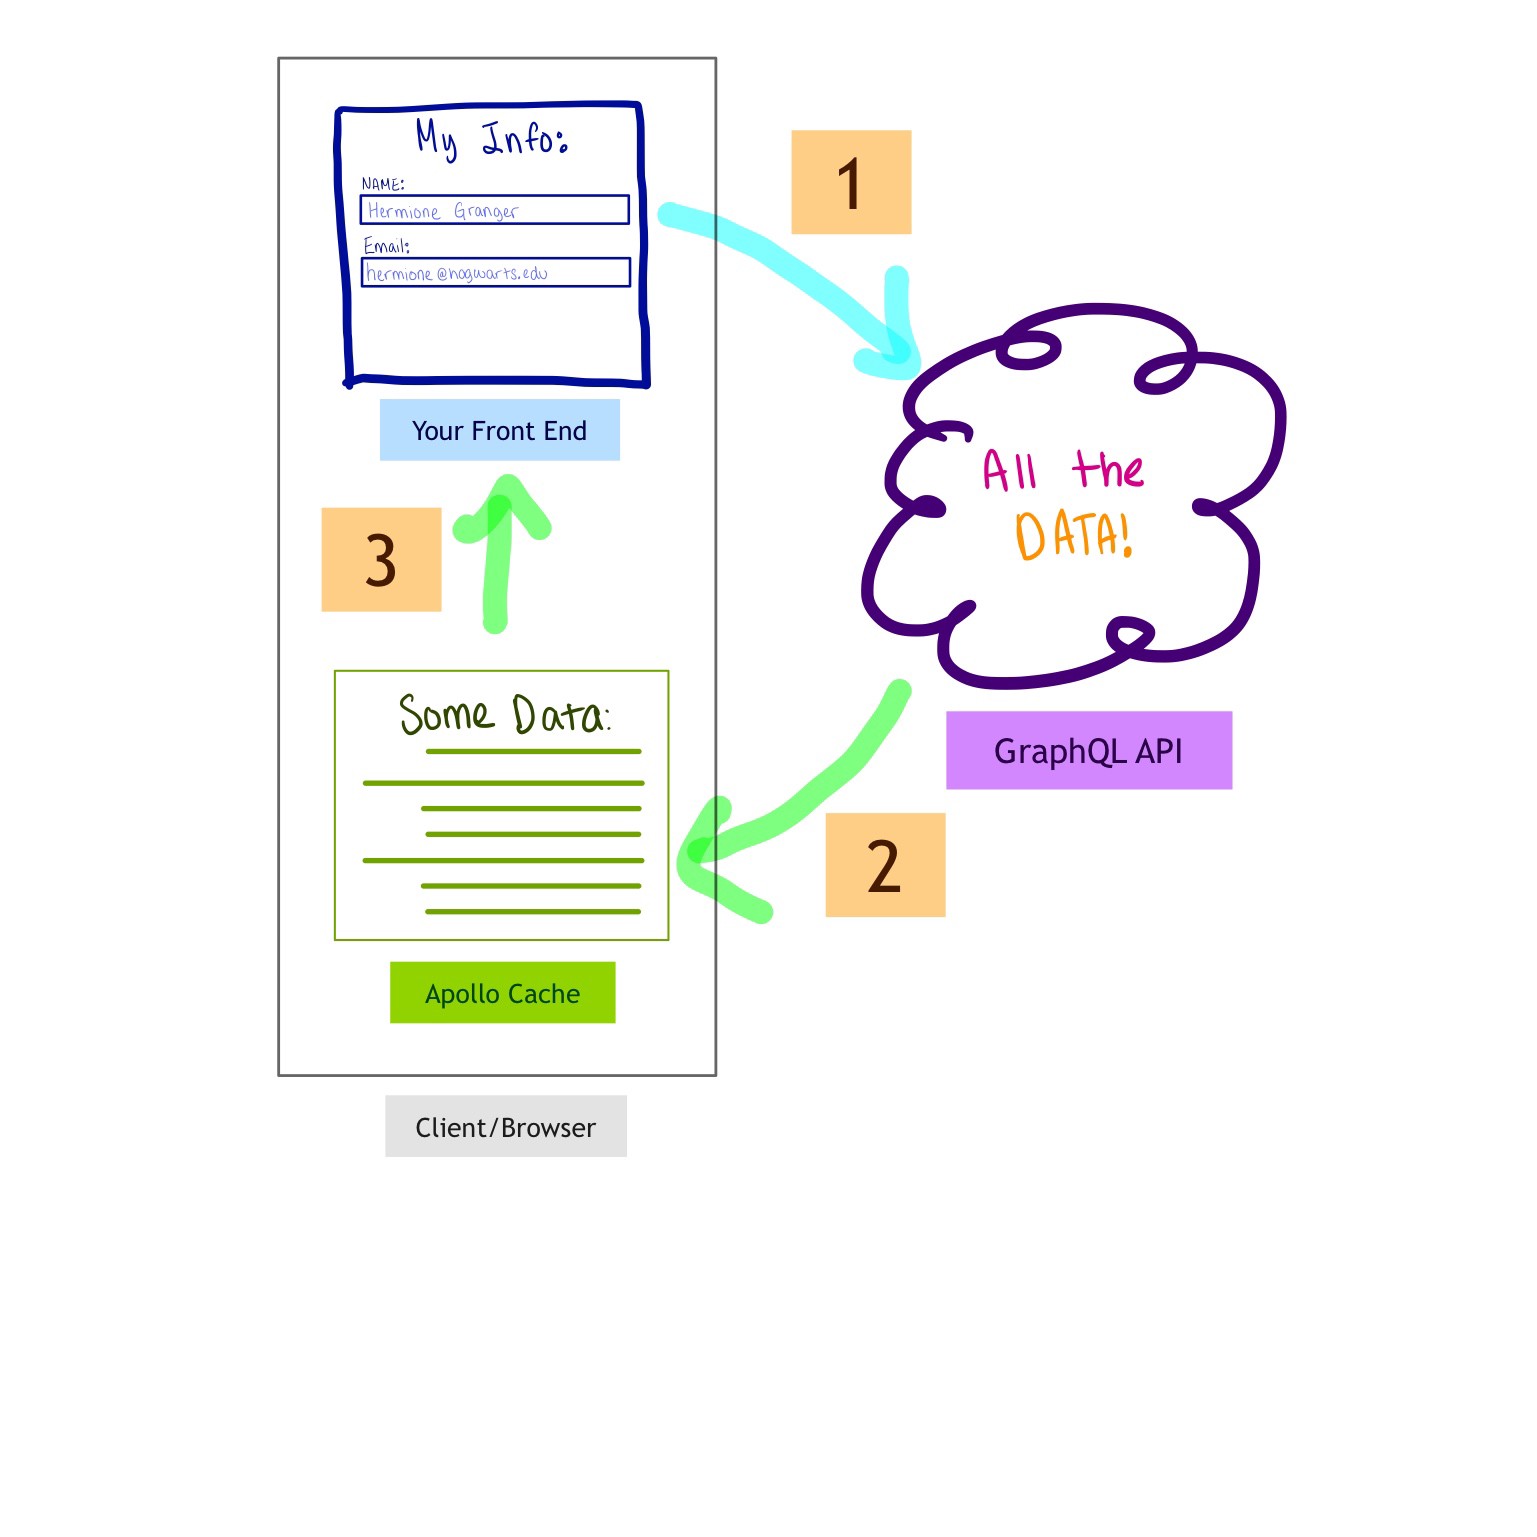 My Info:
NAME:
Hermione Granger
Email:
hermione@hogwarts.edu
Your Front End
1
All the
DATA!
GraphQL API
2
3
Some Data:
Apollo Cache
Client/Browser